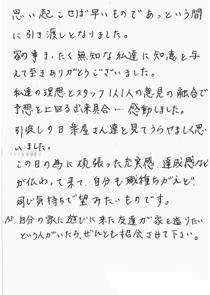 思い起こせば早いものであっという間
に引き渡しとなりました。
家の事まったく無知な私達に知恵を与
えて頂きありがとうございました。
私達の理想とスタッフ1人1人の意見の融合で
予想を上回る出来具合 感動しました。
引渡しの日 業屋さん達を見てうらやましく思
いました。
この日の為に頑張った充実感、達成感など
が伝わって来て、自分も職種ちがえど
同じ気持ちで望みたいものです。
PS. 自分の家に遊びに来た友達が家を造りたい
という人がいたら、ぜひとも紹介させて下さい。